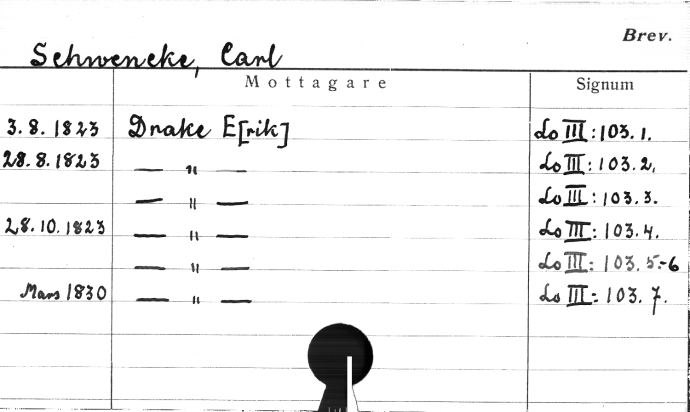 Brev.
Schwencke, Carl
Mottagare Signum
3.8.1823 Drake E[rik] Lo III:103.1.
28.8.1823 — " — Lo III:103.2.
— " — Lo III:103.3.
28.10.1823 — " — Lo III:103.4.
— " — Lo III:103.5-6
Mars 1830 — " — Lo III:103.7.